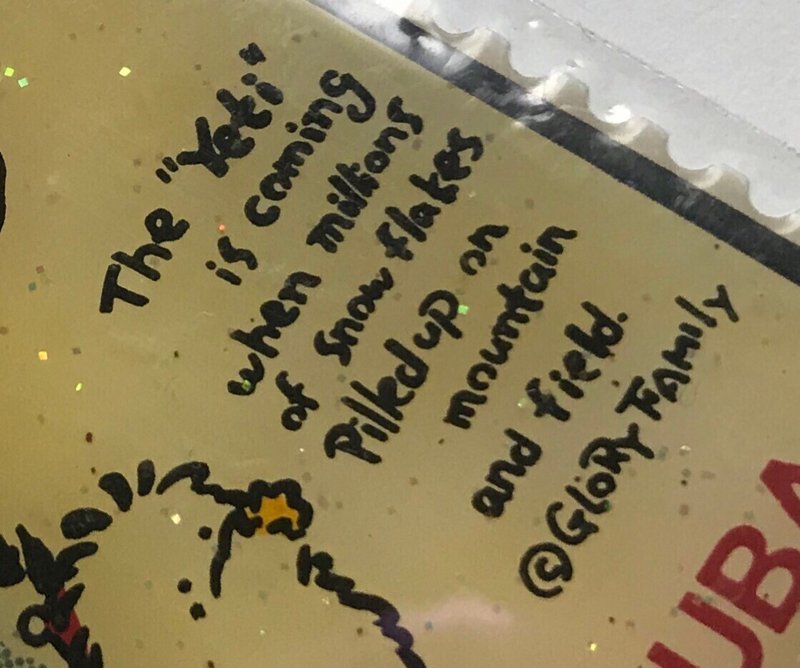 The "Yeti"
is coming
when millions
of snow flakes
Pilled up on
mountain
and field.
©GLORY FAMILY
UBA